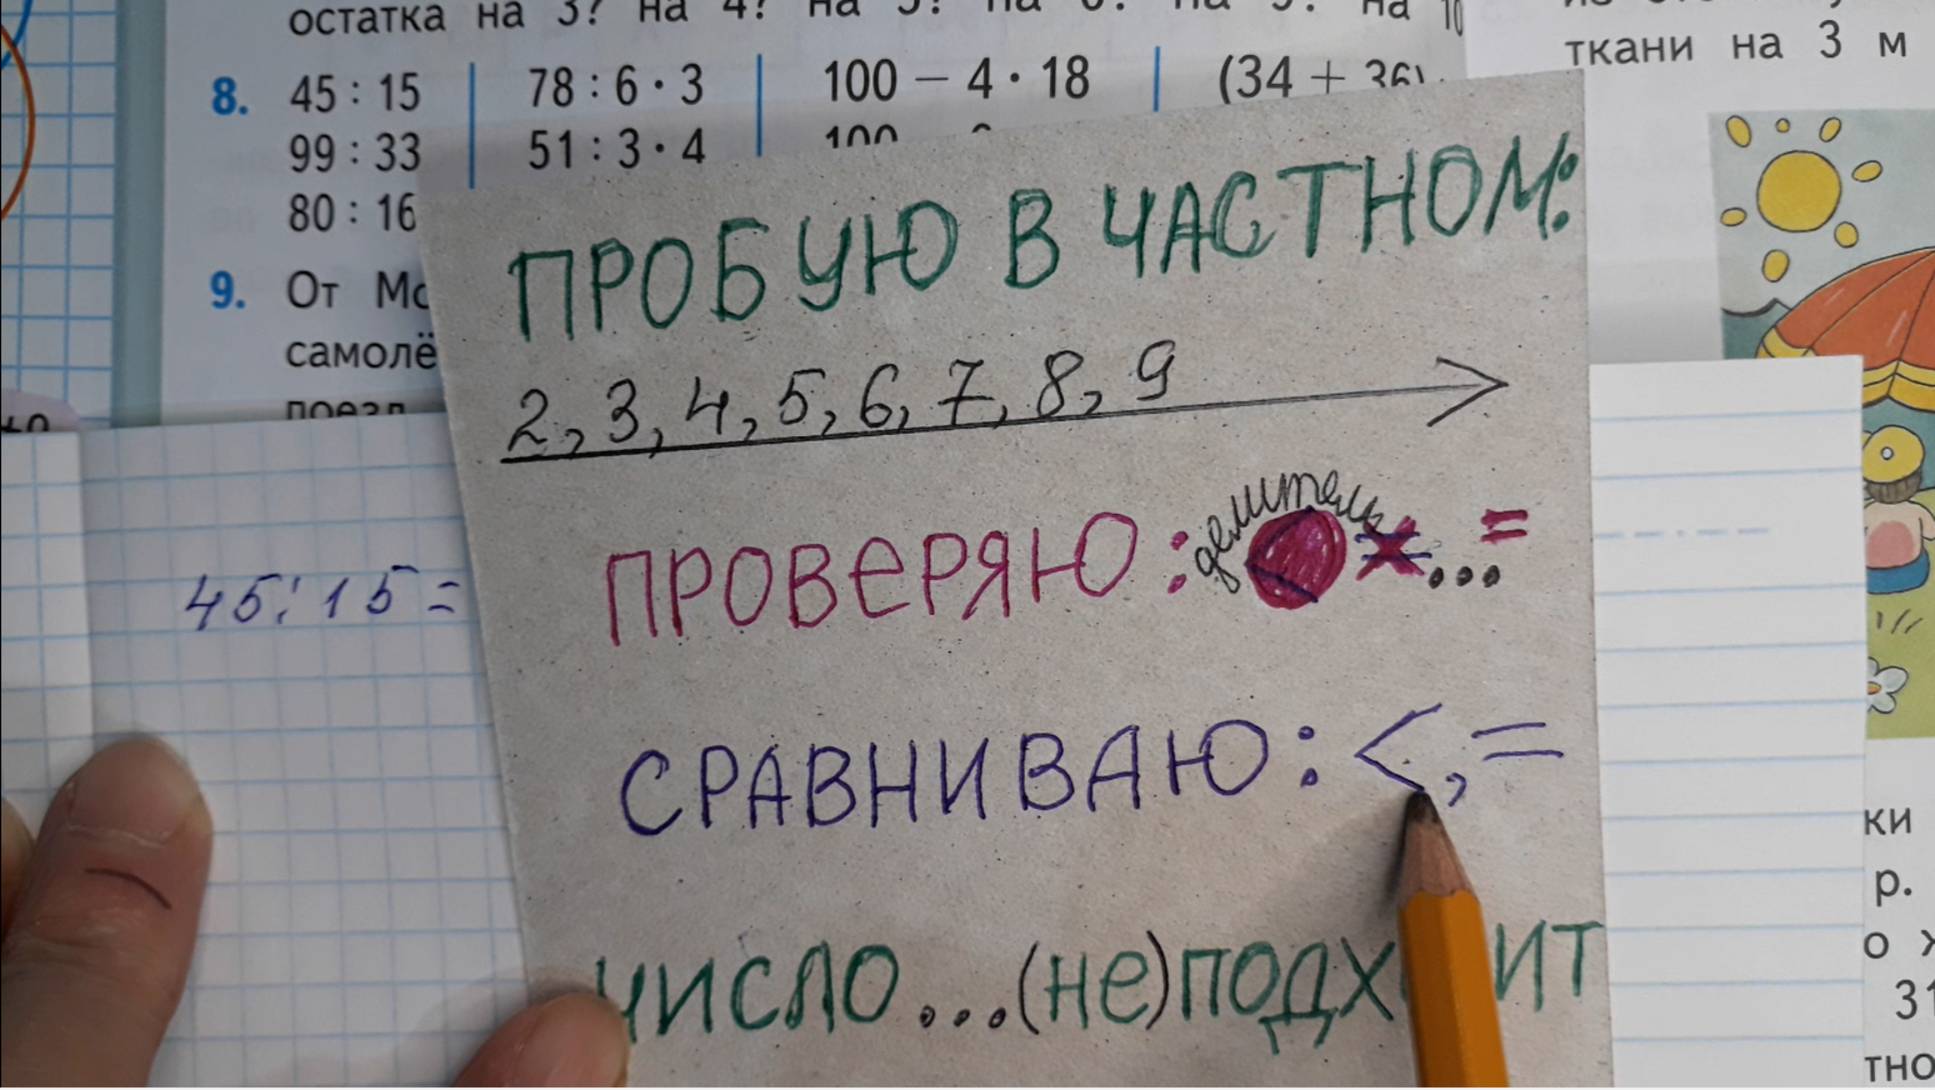 остатка на 3? на 4? на 5? на 6? на 9? на 10
8. 45 : 15 78 : 6 · 3 100 − 4 · 18 (34 + 36)
99 : 33 51 : 3 · 4 100
80 : 16
9. От Мо
самолё
поезд
ткани на 3 м
ПРОБУЮ В ЧАСТНОМ:
2, 3, 4, 5, 6, 7, 8, 9
делитель
ПРОВЕРЯЮ: × ... =
45:15=
СРАВНИВАЮ: <, =
ЧИСЛО...(НЕ)ПОДХОДИТ
ки
р.
о
31
тно